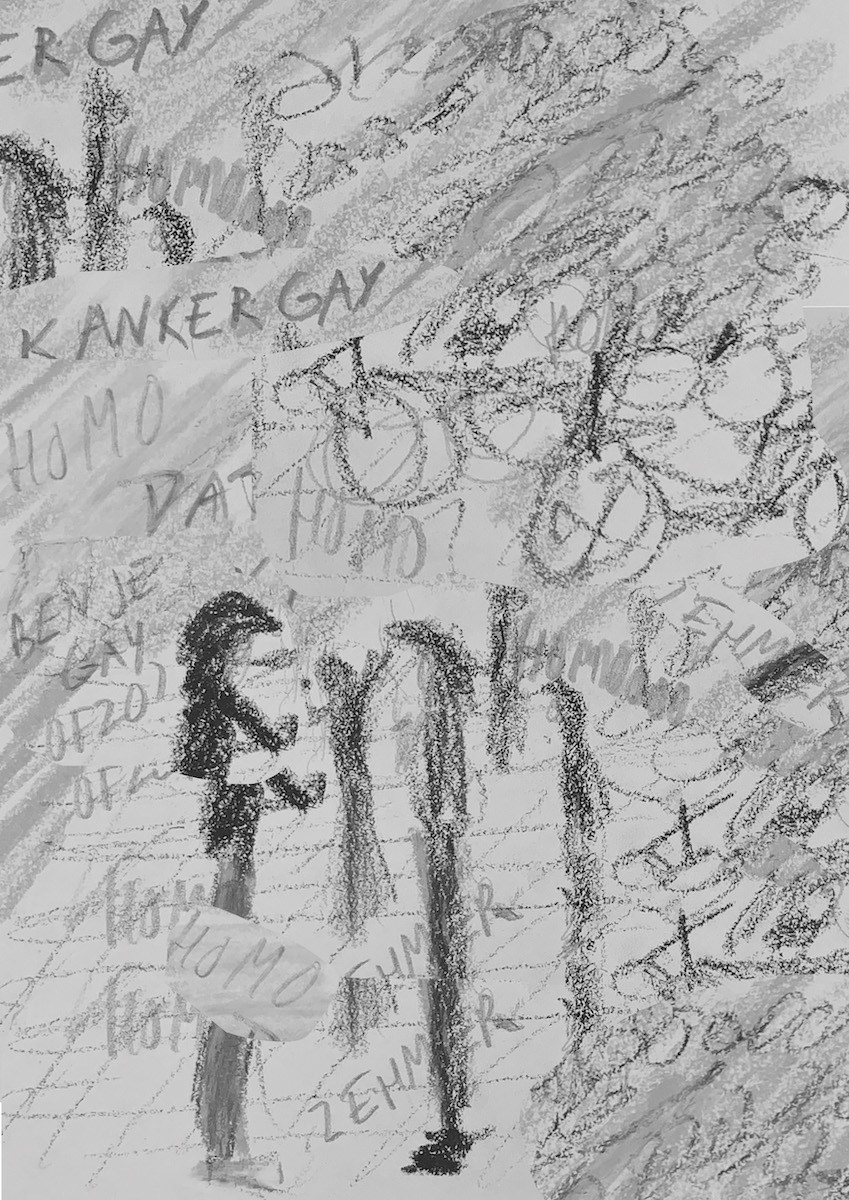 ER GAY
HOMO
KANKER GAY
HOMO
HOMO
DAT
HOMO
BEN JE
GAY
OF ZO?
OF
HOMO
ZEHM
HOM
HOMO
EHMER
HOM
ZEHMER